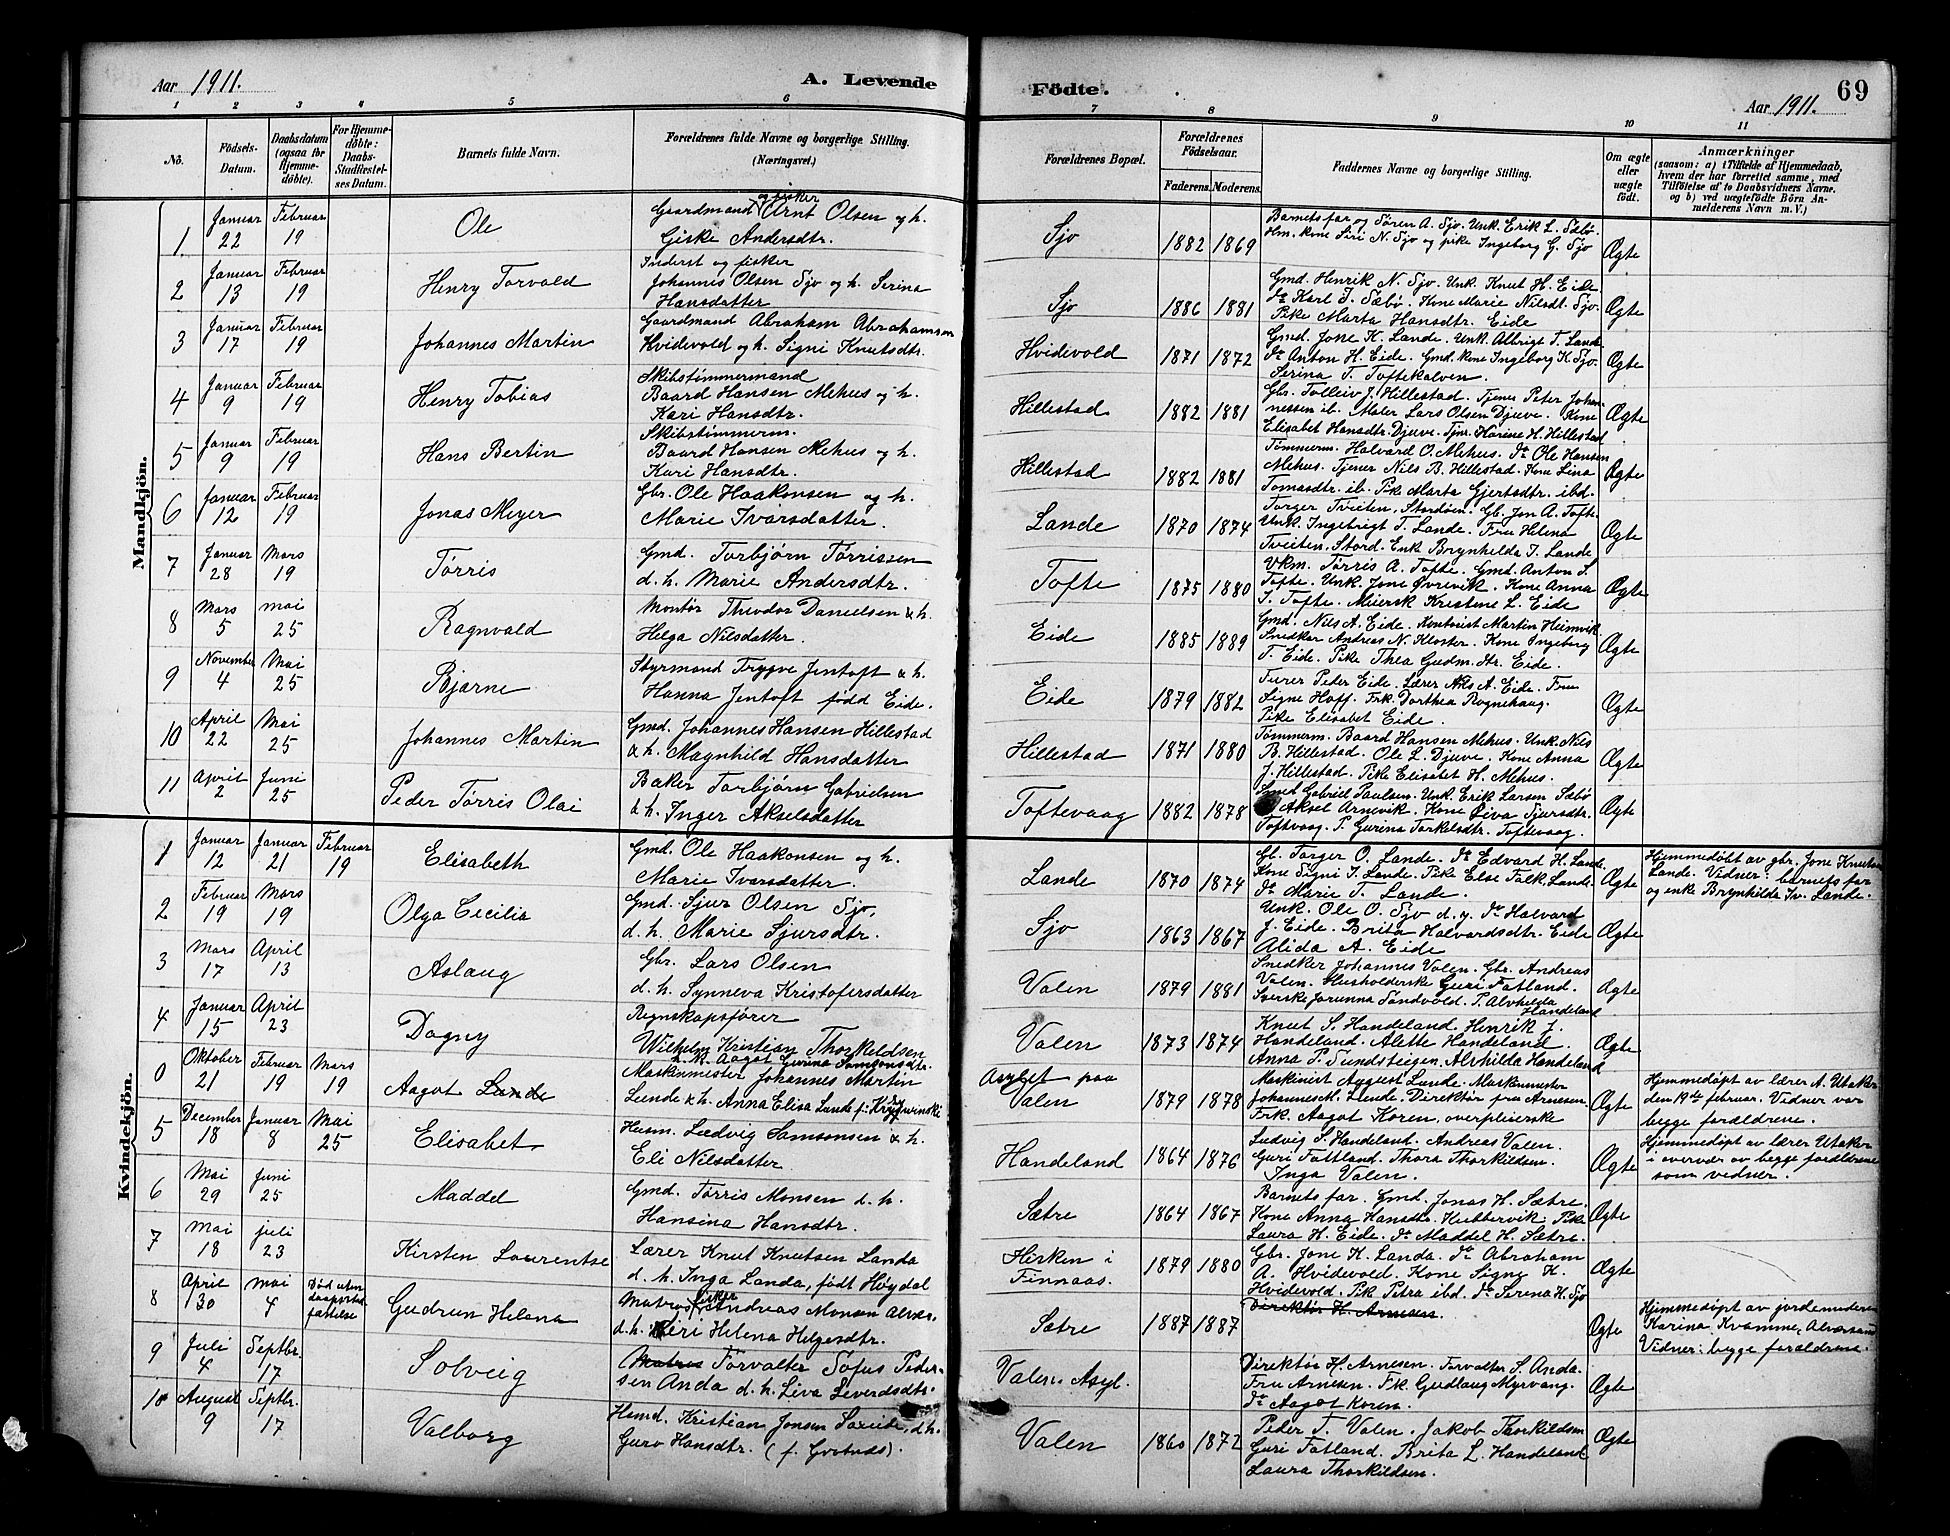 Aar 1911.
A. Levende
Födte.
69
Aar 1911.
1 2 3 4 5 6 7 8 9 10 11
No.
Födsels-Datum.
Daabsdatum (ogsaa for Hjemme-døbte).
For Hjemme-døbte: Daabs-Stadfæstel-ses Datum.
Barnets fulde Navn.
Forældrenes fulde Navne og borgerlige Stilling. (Næringsvei.)
Forældrenes Bopæl.
Forældrenes Födselsaar.
Faderens. Moderens.
Faddernes Navne og borgerlige Stilling.
Om ægte eller uægte født.
Anmærkninger
(saasom: a) i Tilfælde af Hjemmedaab, hvem der har forrettet samme, med Tilföielse af to Daabsvidners Navne. og b) ved uægtefödte Börn An-melderens Navn m. V.)
Mandkjön.
1 Januar 22 Februar 19 Ole Gaardmand og fisker Arnt Olsen og h. Giske Andersdtr. Sjo 1882 1869 Barnets far og Sören A. Sjo. Unk. Erik L. Sæbø. Hm. kone Siri N. Sjo og pike Ingeborg G. Sjo Ægte
2 Januar 13 Februar 19 Henry Torvald Inderst og fisker Johannes Olsen Sjo og h. Serina Hansdatter Sjo 1886 1881 Gmd. Henrik N. Sjo. Unk. Knut H. Eide do Karl J. Sæbø. Kone Marie Nilsdt. Sjo. Pike Marta Hansdtr. Eide Ægte
3 Januar 17 Februar 19 Johannes Martin Gaardmand Abraham Abrahamsen Hvidevold og h. Signi Knutsdtr. Hvidevold 1871 1872 Gmd. Jone K. Lande. Unk. Albrigt T. Lande do Anton H. Eide. Gmd. kone Ingeborg K. Sjo. Serina T. Toftekalven. Ægte
4 Januar 9 Februar 19 Henry Tobias Skibstimmermand Baard Hansen Mehus og h. Kari Hansdtr. Hillestad 1882 1881 Gbr. Tolleiv J. Hillestad. Tjener Peter Johan-nessen ib. Maler Lars Olsen Djuve. Kone Elisabet Hansdtr. Djuve. Tjnr. Karine H. Hillestad Ægte
5 Januar 9 Februar 19 Hans Bertin Skibstimmerm. Baard Hansen Mehus og h. Kari Hansdtr. Hillestad 1882 1881 Tömmerm. Halvard O. Mehus. do Ole Hansen Mehus. Tjener Nils B. Hillestad. Kone Lina Tomasdtr. ib. Pik Marta Gjertsdtr. ibd. Ægte
6 Januar 12 Februar 19 Jonas Meyer Gbr. Ole Haakonsen og h. Marie Ivarsdatter. Lande 1870 1874 Torger Tveiten, Stordöen. Gb. Jon A. Tofte. Unk. Ingebrigt T. Lande. Fru Helena Tveiten, Stord. Enk. Brynhilda I. Lande Ægte
7 Januar 28 Mars 19 Tørris Gmd. Torbjørn Tørrissen d. h. Marie Andersdtr. Tofte 1875 1880 Vkm. Tørris A. Tofte. Gmd. Anton S. Tofte. Unk. Jone Øvrevik. Kone Anna T. Tofte. Meiersk Kristene L. Eide Ægte
8 Mars 5 mai 25 Ragnvald Montør Theodor Danielsen & h. Helga Nilsdatter. Eide 1885 1889 Gmd. Nils A. Eide. Kontorist Martin Heimvik Snedker Andreas N. Kloster. Kone Ingeborg T. Eide. Pike Thea Gudm. dtr. Eide. Ægte
9 November 4 Mai 25 Bjarne Styrmand Trygve Jentoft & h. Hanna Jentoft född Eide. Eide 1879 1882 Furer Peder Eide. Lærer Nils A. Eide. Fru Signe Hoff. Frk. Dorthea Rognehaug. Pike Elisabet Eide. Ægte
10 April 22 Mai 25 Johannes Martin Gmd. Johannes Hansen Hillestad & h. Magnhild Hansdatter Hillestad 1871 1880 Tømmerm. Baard Hansen Mehus. Unk. Nils B. Hillestad. Ole L. Djuve. Kone Anna J. Hillestad. Pike Elisabet H. Mehus. Ægte
11 April 2 Juni 25 Peder Tørris Olai Baker Torbjørn Gabrielsen & h. Inger Akselsdatter Toftevaag 1882 1878 Smed Gabriel Paulsen. Unk. Erik Larsen Sæbø Aksel Arnevik. Kone Siva Sjursdtr. Toftvaag. P. Gurina Torkelsdtr. Toftevaag. Ægte
Kvindekjön.
1 Januar 12 Januar 21 Februar 19 Elisabeth Gmd. Ole Haakonsen og h. Marie Ivarsdatter. Lande 1870 1874 Gb. Torger O. Lande. do Edvard H. Lande. Kone Signi T. Lande. Pike Else Falk, Lande. do Marie T. Lande. Ægte Hjemmedöbt av gbr. Jone Knutsen Lande. Vidner: barnets far og enke Brynhilda Iv. Lande.
2 Februar 19 Mars 19 Olga Cecilia Gmd. Sjur Olsen Sjo, d. h. Marie Sjursdtr. Sjo 1863 1867 Unk. Ole O. Sjo d. y. do Halvard J. Eide. Brita Halvardsdtr. Eide Alida A. Eide Ægte
3 Mars 17 April 13 Aslaug Gbr. Lars Olsen d. h. Synneva Kristofersdatter Valen 1879 1881 Snedker Johannes Valen. Gbr. Andreas Valen. Husholderske Guri Fatland. Sverske Jorunna Sandvold. P. Alvhilda Handeland Ægte
4 Januar 15 April 23 Dagny Regnskapsförer Wilhelm Kristian Thorkildsen d. h. Aagot Gurina Samsonsdtr. Valen 1873 1874 Knut S. Handeland. Henrik J. Handeland. Alette Handeland. Anna P. Sundsteigen. Alvhilda Handeland Ægte
0 Oktober 21 Februar 19 Mars 19 Aagot Lunde Maskinmester Johannes Martin Lunde & h. Anna Elisa Lunde f. Asylet paa Valen 1879 1878 Maskinist August Lunde. Maskinmester Johannes M. Lunde. Direktør fru Arnesen. Frk. Aagot Koren, overpleierske Ægte Hjemmedøpt av lærer A. Utaker den 19de februar. Vidner var begge foraldrene.
5 December 18 Januar 8 Mai 25 Elisabet Husm. Ludvig Samsonsen & h. Eli Nilsdatter Handeland 1864 1876 Ludvig S. Handeland. Andreas Valen. Guri Fattland. Thora Thorkildsen. Inga Valen. Ægte Hjemmedøpt av lærer Utaker i overvær av begge foraldrene som vidner.
6 Mai 29 Juni 25 Maddel Gmd. Tørris Monsen d. h. Hansina Hansdtr. Sætre 1864 1867 Barnets far. Gmd. Jonas H. Sætre. Kone Anna Hansdtr. Hubbervik. Pike Laura H. Eide. do Maddel H. Sætre. Ægte
7 Mai 18 juli 23 Kirsten Laurentse Lærer Knut Knutsen Landa d. h. Inga Landa, født Høgdal Hirken i Finnaas. 1879 1880 Gbr. Jone K. Landa. do Abraham A. Hvidevold. Kone Signy K. Hvidevold. Pik. Petra ibd. do Serina H. Sjo Ægte
8 April 30 Mai 4 Död uten daapsstad-fæstelse Gudrun Helena Matros fisker Andreas Monsen d. h. Siri Helena Helgesdtr. Sætre 1887 1887 Direktør H. Arnesen. Ægte Hjemmedøpt av jordemoderen Karina Kvamme, Alversund Vidner: begge foraldrene.
9 Juli 4 Septbr. 17 Solveig Matros Forvalter Sofus Peder-sen Anda d. h. Liva Severdsdtr. Valens Asyl. Direktør H. Arnesen. Forvalter S. Anda. Fru Arnesen. Fk. Gudlaug Myrvang. do Aagot Koren. Ægte
10 August 9 Septbr. 17 Valborg Hsmd. Kristian Jonsen d. h. Guro Hansdtr. Valen 1860 1872 Peder T. Valen. Jakob Thorkildsen Guri Fatland. Brita L. Handeland. Laura Thorkildsen. Ægte